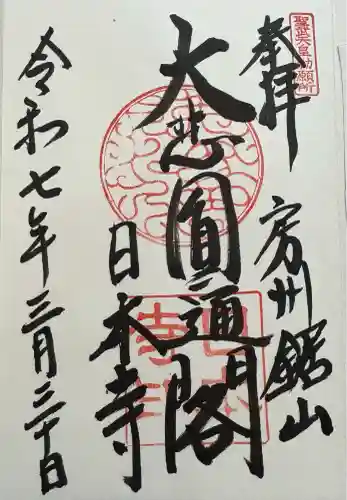 奉拝
聖武天皇勅願所
房州鋸山
大悲圓通閣
日本寺
令和七年三月二十日